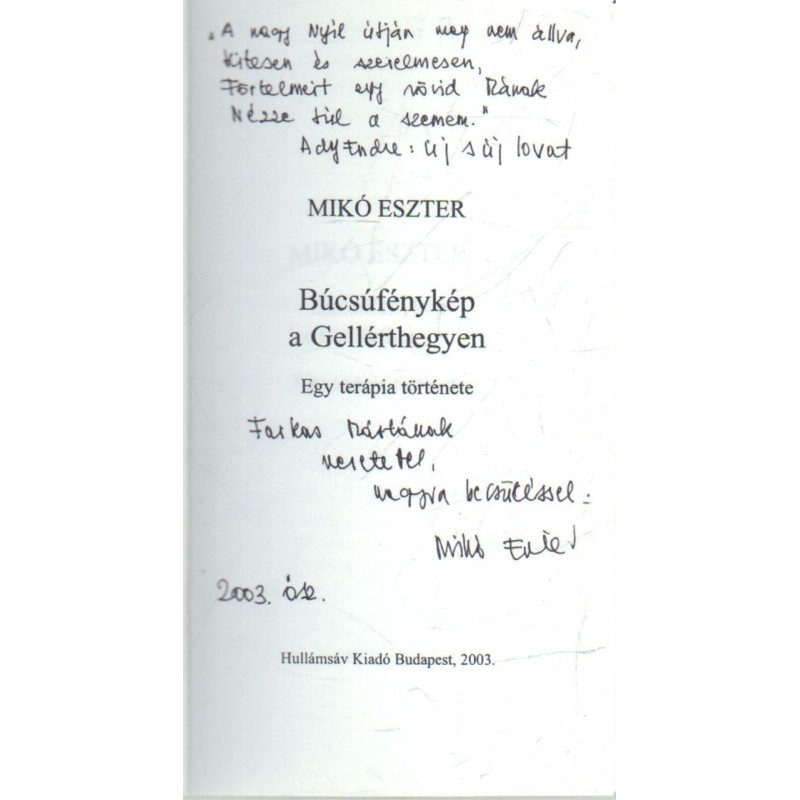 „A nagy Nyíl útján meg nem állva,
Hitesen és szerelmesen,
Förtelmeit egy rövid Mának
Nézze túl a szemem."
Ady Endre: Új s új lovat
MIKÓ ESZTER
Búcsúfénykép
a Gellérthegyen
Egy terápia története
Farkas Mártának
szeretettel,
nagyra becsüléssel:
Mikó Eszter
2003. ősz.
Hullámsáv Kiadó Budapest, 2003.